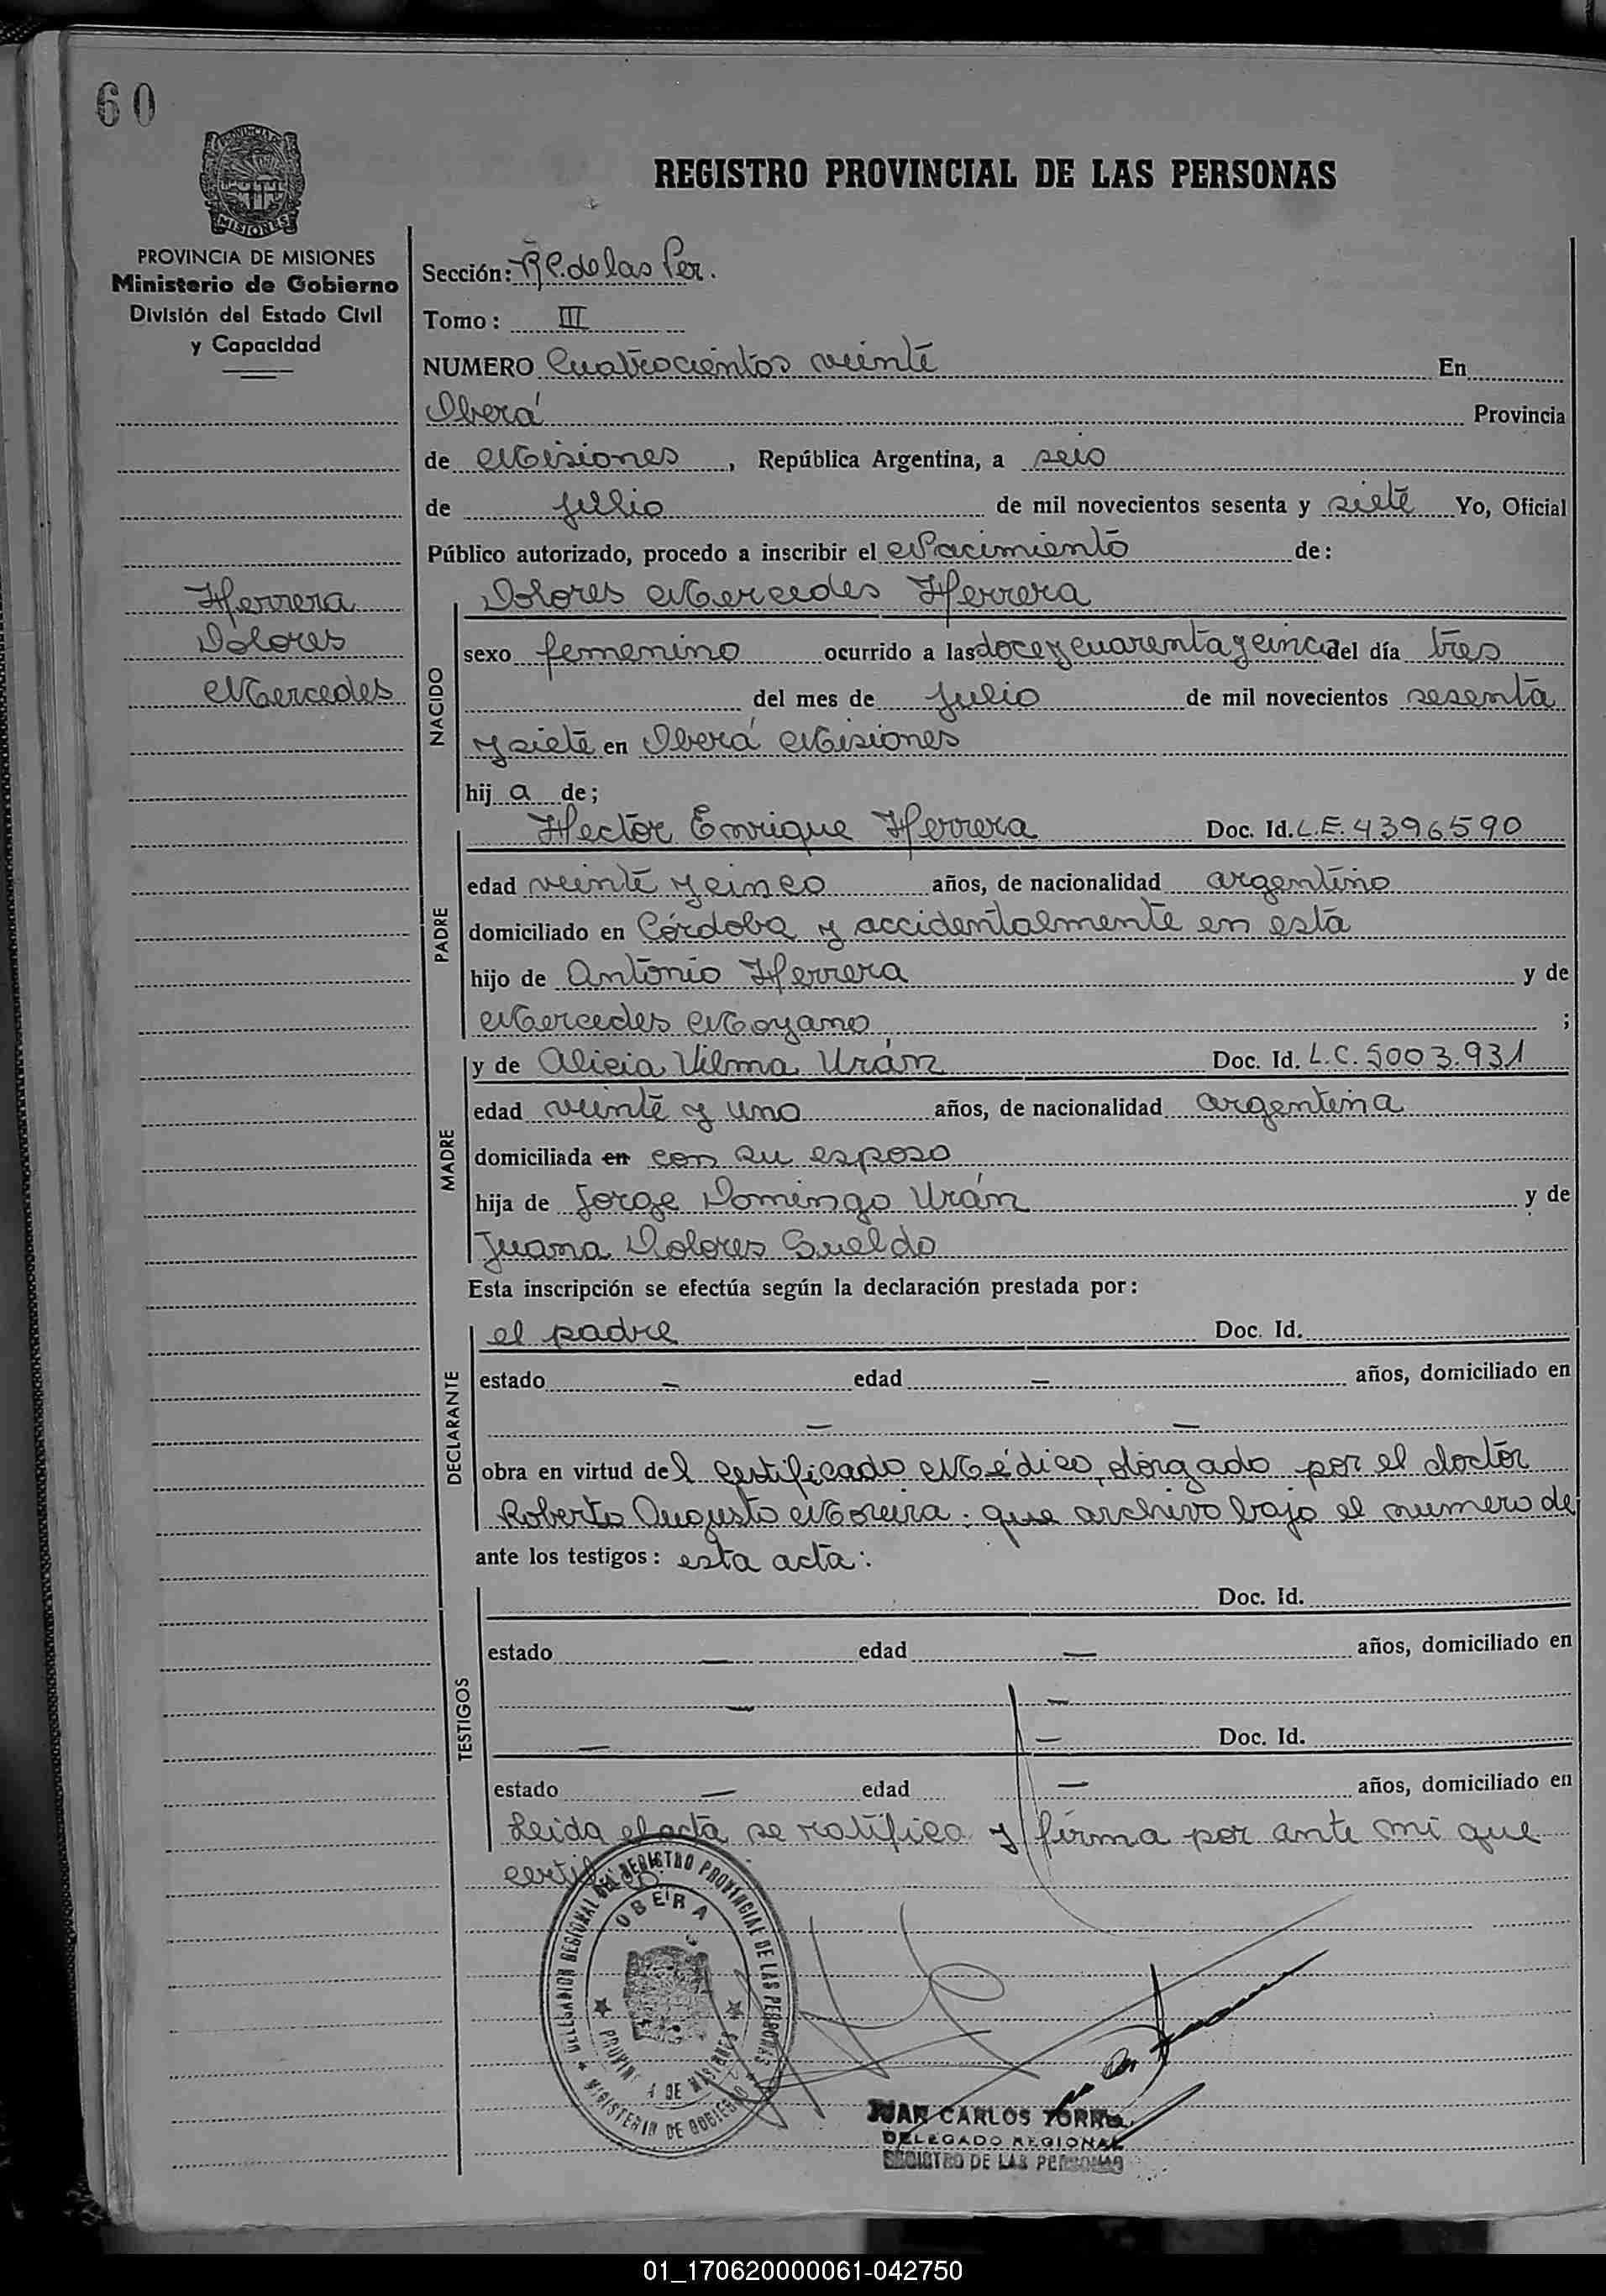 60
PROVINCIA DE
MISIONES
REGISTRO PROVINCIAL DE LAS PERSONAS
PROVINCIA DE MISIONES
Ministerio de Gobierno
División del Estado Civil
y Capacidad
Herrera
Dolores
Mercedes
Sección: R P. de las Per.
Tomo: III
NUMERO Cuatrocientos veinte En
Oberá Provincia
de Misiones, República Argentina, a seis
de Julio de mil novecientos sesenta y siete Yo, Oficial
Público autorizado, procedo a inscribir el Nacimiento de:
NACIDO
Dolores Mercedes Herrera
sexo femenino ocurrido a las doce y cuarenta y cinco del día tres
del mes de Julio de mil novecientos sesenta
y siete en Oberá Misiones
hij a de;
PADRE
Hector Enrique Herrera Doc. Id. L.E. 4396590
edad veinte y cinco años, de nacionalidad argentino
domiciliado en Córdoba y accidentalmente en esta
hijo de Antonio Herrera y de
Mercedes Moyano ;
MADRE
y de Alicia Vilma Urán Doc. Id. L.C. 5003.931
edad veinte y uno años, de nacionalidad argentina
domiciliada en con su esposo
hija de Jorge Domingo Urán y de
Juana Dolores Gueldo
Esta inscripción se efectúa según la declaración prestada por:
DECLARANTE
el padre Doc. Id.
estado — edad — años, domiciliado en
— —
obra en virtud del certificado Médico, otorgado por el doctor
Roberto Augusto Moreira. que archivo bajo el numero de
ante los testigos: esta acta:
TESTIGOS
Doc. Id.
estado — edad — años, domiciliado en
— —
— — Doc. Id.
estado — edad — años, domiciliado en
Leida el acta se ratifica y firma por ante mi que
certifico.
DELEGACION REGIONAL DEL REGISTRO PROVINCIAL DE LAS PERSONAS
OBERA
PROVINCIA DE MISIONES
MINISTERIO DE GOBIERNO
JUAN CARLOS TORRES
DELEGADO REGIONAL
REGISTRO DE LAS PERSONAS
01_170620000061-042750